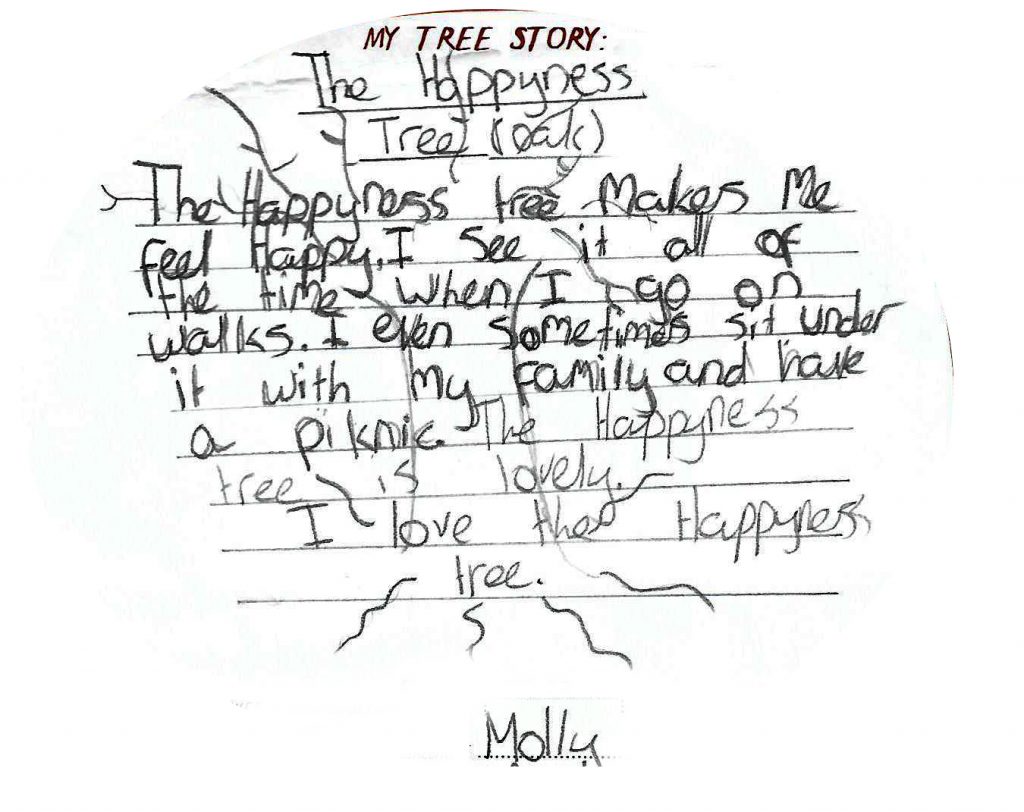 MY TREE STORY:
The Happyness
Tree (oak)
The Happyness tree Makes Me
feel Happy. I see it all of
the time when I go on
walks. I even sometimes sit under
it with my family and have
a piknic. The Happyness
tree is lovely.
I love the Happyness
tree.
Molly